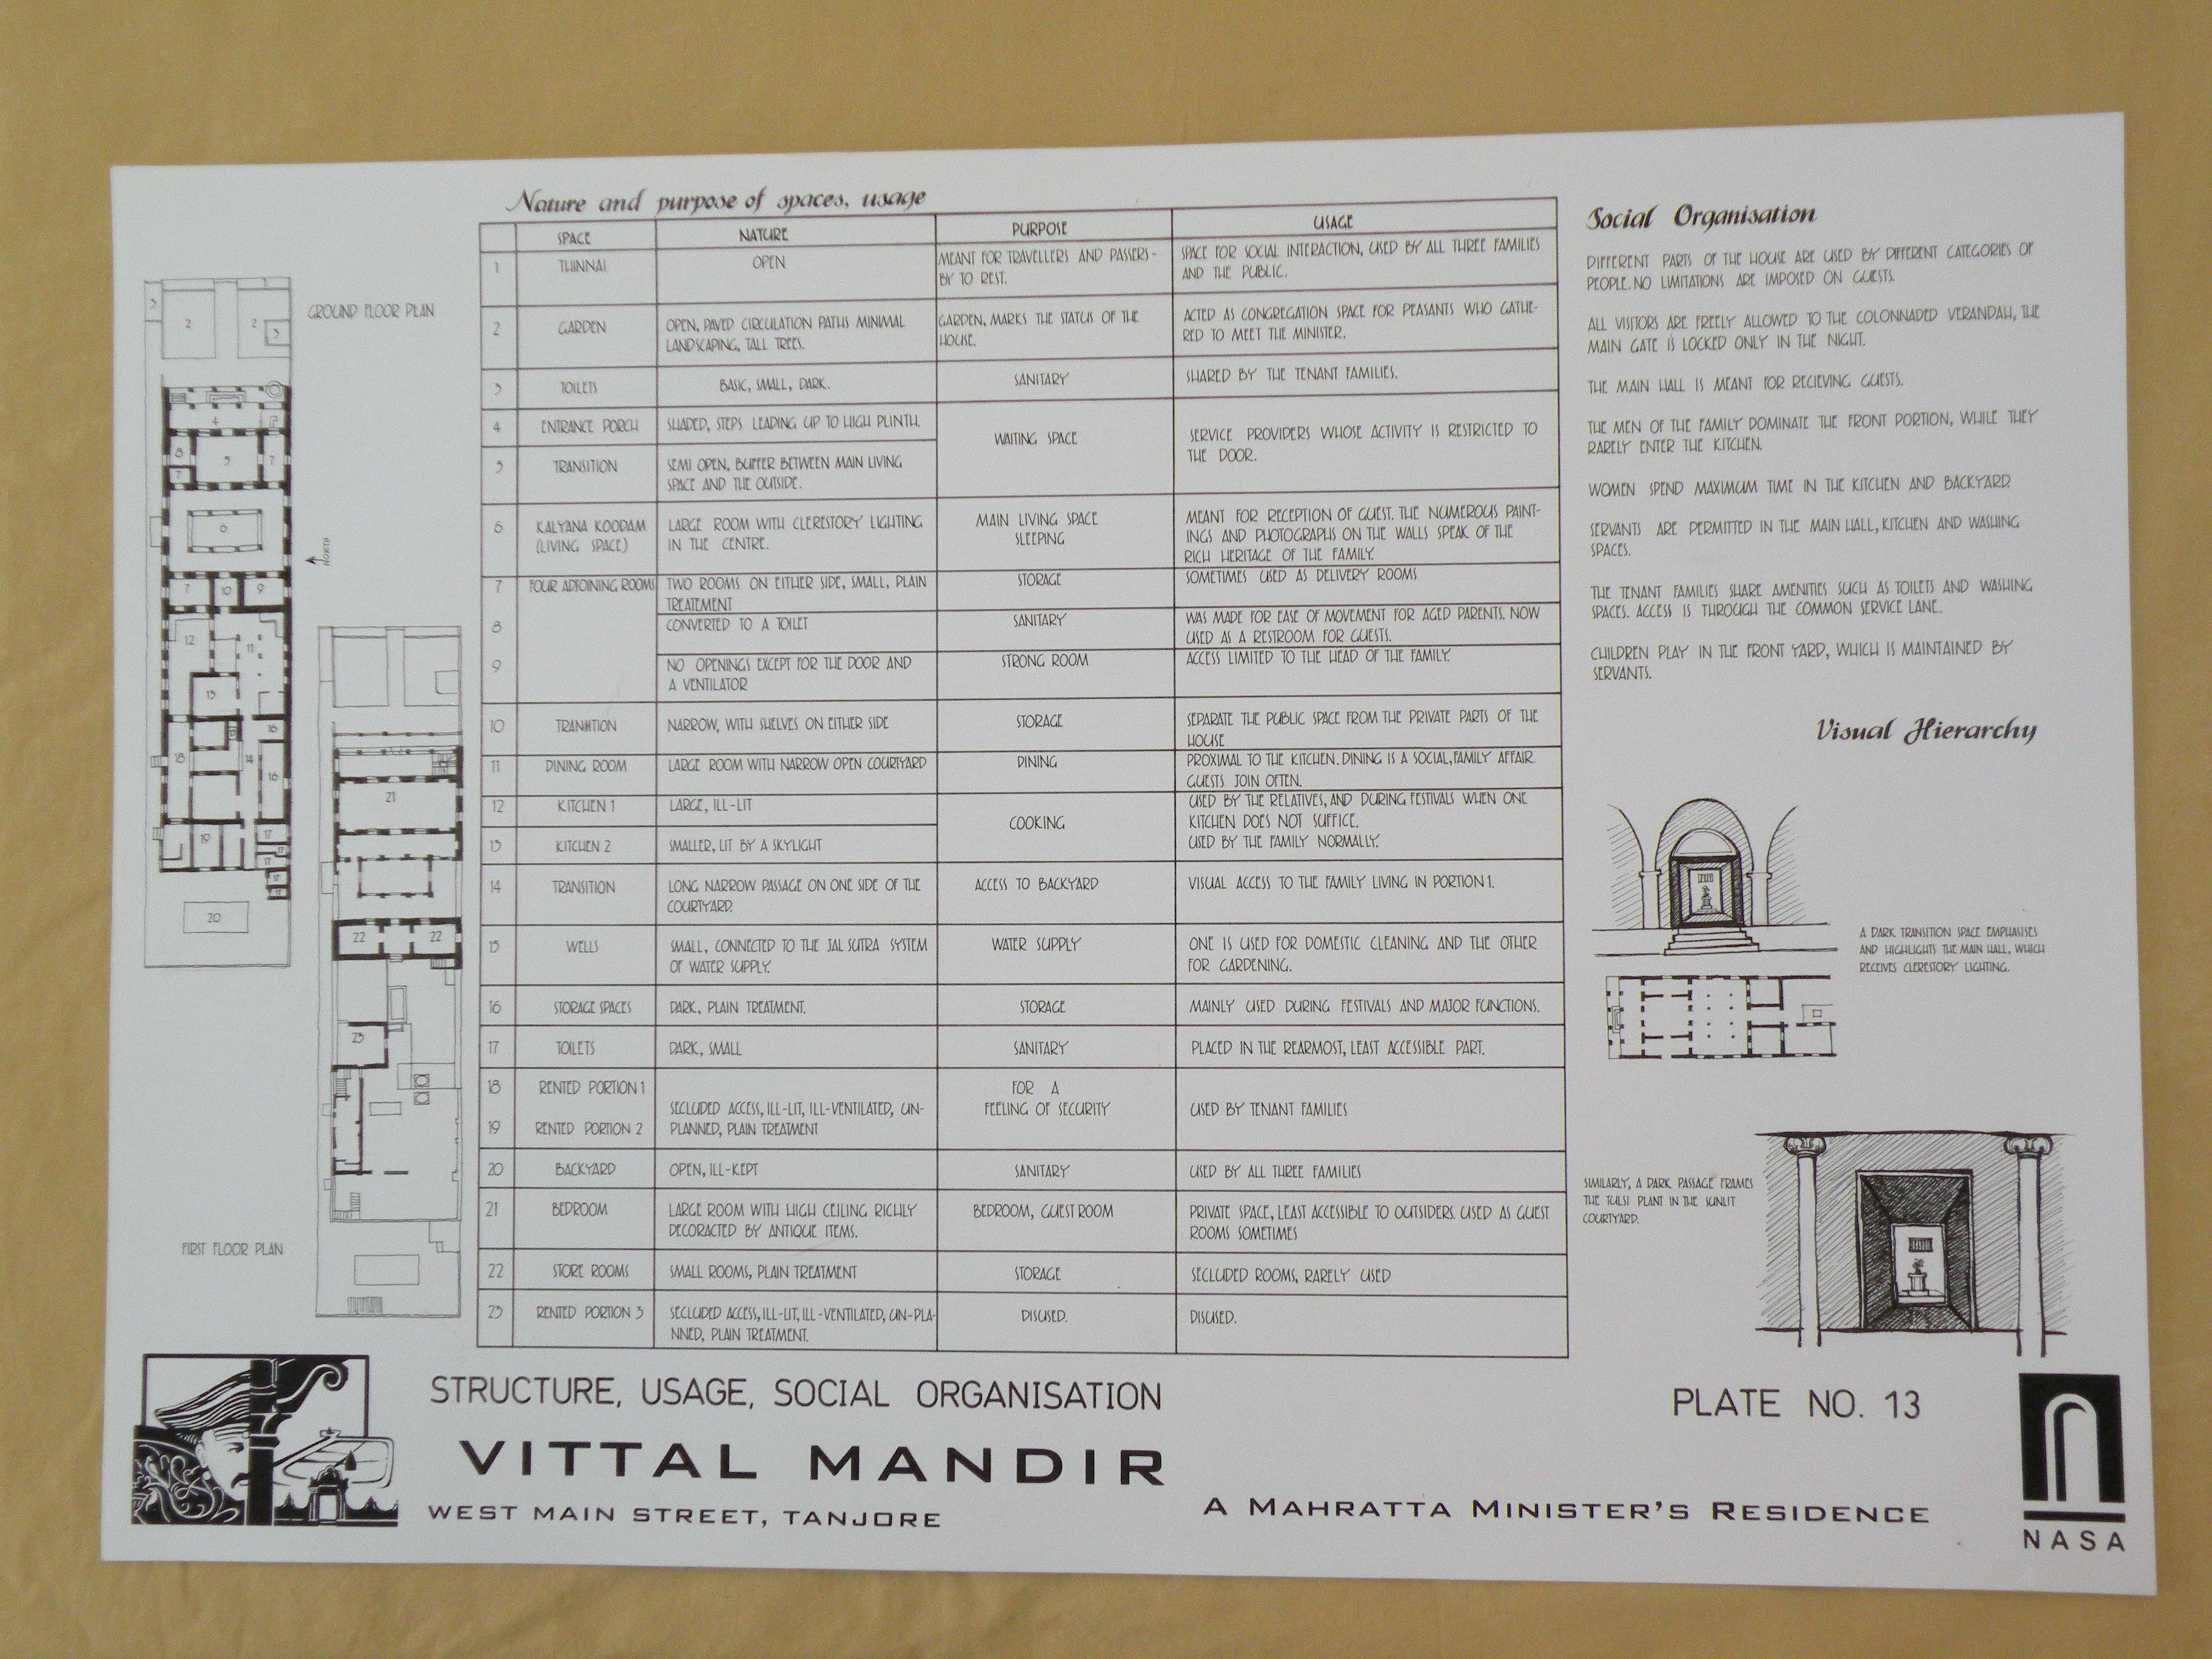 Nature and purpose of spaces, usage
SPACE NATURE PURPOSE USAGE
1 THINNAI OPEN MEANT FOR TRAVELLERS AND PASSERS-
BY TO REST. SPACE FOR SOCIAL INTERACTION, USED BY ALL THREE FAMILIES
AND THE PUBLIC.
2 GARDEN OPEN, PAVED CIRCULATION PATHS MINIMAL
LANDSCAPING, TALL TREES. GARDEN, MARKS THE STATUS OF THE
HOUSE. ACTED AS CONGREGATION SPACE FOR PEASANTS WHO GATHE-
RED TO MEET THE MINISTER.
3 TOILETS BASIC, SMALL, DARK. SANITARY SHARED BY THE TENANT FAMILIES.
4 ENTRANCE PORCH SHADED, STEPS LEADING UP TO HIGH PLINTH.
WAITING SPACE SERVICE PROVIDERS WHOSE ACTIVITY IS RESTRICTED TO
THE DOOR.
5 TRANSITION SEMI OPEN, BUFFER BETWEEN MAIN LIVING
SPACE AND THE OUTSIDE.
6 KALYANA KOODAM
(LIVING SPACE) LARGE ROOM WITH CLERESTORY LIGHTING
IN THE CENTRE. MAIN LIVING SPACE
SLEEPING MEANT FOR RECEPTION OF GUEST. THE NUMEROUS PAINT-
INGS AND PHOTOGRAPHS ON THE WALLS SPEAK OF THE
RICH HERITAGE OF THE FAMILY.
7 FOUR ADJOINING ROOMS TWO ROOMS ON EITHER SIDE, SMALL, PLAIN
TREATEMENT STORAGE SOMETIMES USED AS DELIVERY ROOMS
8 CONVERTED TO A TOILET SANITARY WAS MADE FOR EASE OF MOVEMENT FOR AGED PARENTS. NOW
USED AS A RESTROOM FOR GUESTS.
9 NO OPENINGS EXCEPT FOR THE DOOR AND
A VENTILATOR STRONG ROOM ACCESS LIMITED TO THE HEAD OF THE FAMILY.
10 NARROW, WITH SHELVES ON EITHER SIDE STORAGE SEPARATE THE PUBLIC SPACE FROM THE PRIVATE PARTS OF THE
HOUSE
11 DINING ROOM LARGE ROOM WITH NARROW OPEN COURTYARD DINING PROXIMAL TO THE KITCHEN. DINING IS A SOCIAL, FAMILY AFFAIR.
GUESTS JOIN OFTEN.
12 KITCHEN 1 LARGE, ILL-LIT COOKING USED BY THE RELATIVES, AND DURING FESTIVALS WHEN ONE
KITCHEN DOES NOT SUFFICE.
13 KITCHEN 2 SMALLER, LIT BY A SKYLIGHT USED BY THE FAMILY NORMALLY.
14 TRANSITION LONG NARROW PASSAGE ON ONE SIDE OF THE
COURTYARD. ACCESS TO BACKYARD VISUAL ACCESS TO THE FAMILY LIVING IN PORTION 1.
15 WELLS SMALL, CONNECTED TO THE JAL SUTRA SYSTEM
OF WATER SUPPLY. WATER SUPPLY ONE IS USED FOR DOMESTIC CLEANING AND THE OTHER
FOR GARDENING.
16 STORAGE SPACES DARK, PLAIN TREATMENT. STORAGE MAINLY USED DURING FESTIVALS AND MAJOR FUNCTIONS.
17 TOILETS DARK, SMALL SANITARY PLACED IN THE REARMOST, LEAST ACCESSIBLE PART.
18 RENTED PORTION 1
19 RENTED PORTION 2 SECLUDED ACCESS, ILL-LIT, ILL-VENTILATED, UN-
PLANNED, PLAIN TREATMENT FOR A
FEELING OF SECURITY USED BY TENANT FAMILIES
20 BACKYARD OPEN, ILL-KEPT SANITARY USED BY ALL THREE FAMILIES
21 BEDROOM LARGE ROOM WITH HIGH CEILING RICHLY
DECORACTED BY ANTIQUE ITEMS. BEDROOM, GUEST ROOM PRIVATE SPACE, LEAST ACCESSIBLE TO OUTSIDERS. USED AS GUEST
ROOMS SOMETIMES
22 STORE ROOMS SMALL ROOMS, PLAIN TREATMENT STORAGE SECLUDED ROOMS, RARELY USED
23 RENTED PORTION 3 SECLUDED ACCESS, ILL-LIT, ILL-VENTILATED, UN-PLA-
NNED, PLAIN TREATMENT. DISUSED. DISUSED.
GROUND FLOOR PLAN
NORTH
FIRST FLOOR PLAN
Social Organisation
DIFFERENT PARTS OF THE HOUSE ARE USED BY DIFFERENT CATEGORIES OF
PEOPLE. NO LIMITATIONS ARE IMPOSED ON GUESTS.
ALL VISITORS ARE FREELY ALLOWED TO THE COLONNADED VERANDAH, THE
MAIN GATE IS LOCKED ONLY IN THE NIGHT.
THE MAIN HALL IS MEANT FOR RECIEVING GUESTS.
THE MEN OF THE FAMILY DOMINATE THE FRONT PORTION, WHILE THEY
RARELY ENTER THE KITCHEN.
WOMEN SPEND MAXIMUM TIME IN THE KITCHEN AND BACKYARD.
SERVANTS ARE PERMITTED IN THE MAIN HALL, KITCHEN AND WASHING
SPACES.
THE TENANT FAMILIES SHARE AMENITIES SUCH AS TOILETS AND WASHING
SPACES. ACCESS IS THROUGH THE COMMON SERVICE LANE.
CHILDREN PLAY IN THE FRONT YARD, WHICH IS MAINTAINED BY
SERVANTS.
Visual Hierarchy
A DARK TRANSITION SPACE EMPHASISES
AND HIGHLIGHTS THE MAIN HALL, WHICH
RECEIVES CLERESTORY LIGHTING.
SIMILARLY, A DARK PASSAGE FRAMES
THE TULSI PLANT IN THE SUNLIT
COURTYARD.
STRUCTURE, USAGE, SOCIAL ORGANISATION
PLATE NO. 13
VITTAL MANDIR
WEST MAIN STREET, TANJORE
A MAHRATTA MINISTER'S RESIDENCE
NASA